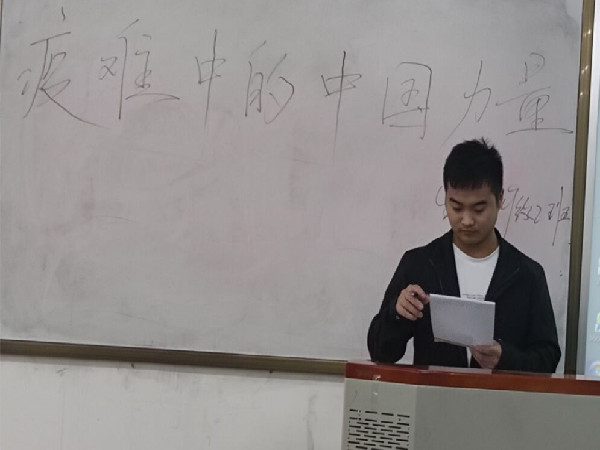 疫难中的中国力量
级2班